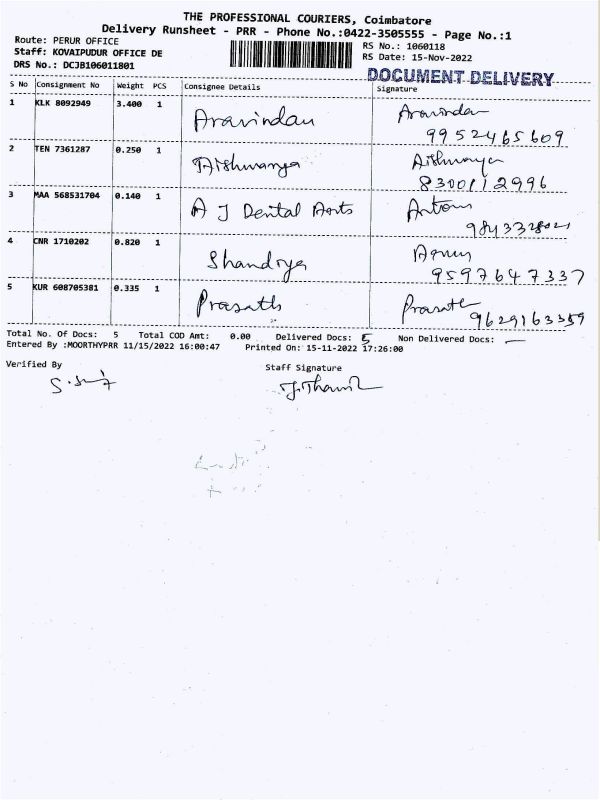 THE PROFESSIONAL COURIERS, Coimbatore
Delivery Runsheet - PRR - Phone No.:0422-3505555 - Page No.:1
Route: PERUR OFFICE
RS No.: 1060118
Staff: KOVAIPUDUR OFFICE DE
RS Date: 15-Nov-2022
DRS No.: DCJB106011801
DOCUMENT DELIVERY
S No Consignment No Weight PCS Consignee Details Signature
1 KLK 8092949 3.400 1 Aravindan Aravindan
9952465609
2 TEN 7361287 0.250 1 Aishwarya Aishwarya
8300112996
3 MAA 568531704 0.140 1 A J Dental Arts Antony
4 CNR 1710202 0.820 1 Shandrya
9597647337
5 KUR 608705381 0.335 1 Prasath Prasath
9629163359
Total No. Of Docs: 5 Total COD Amt: 0.00 Delivered Docs: 5 Non Delivered Docs: —
Entered By :MOORTHYPRR 11/15/2022 16:00:47 Printed On: 15-11-2022 17:26:00
Verified By Staff Signature